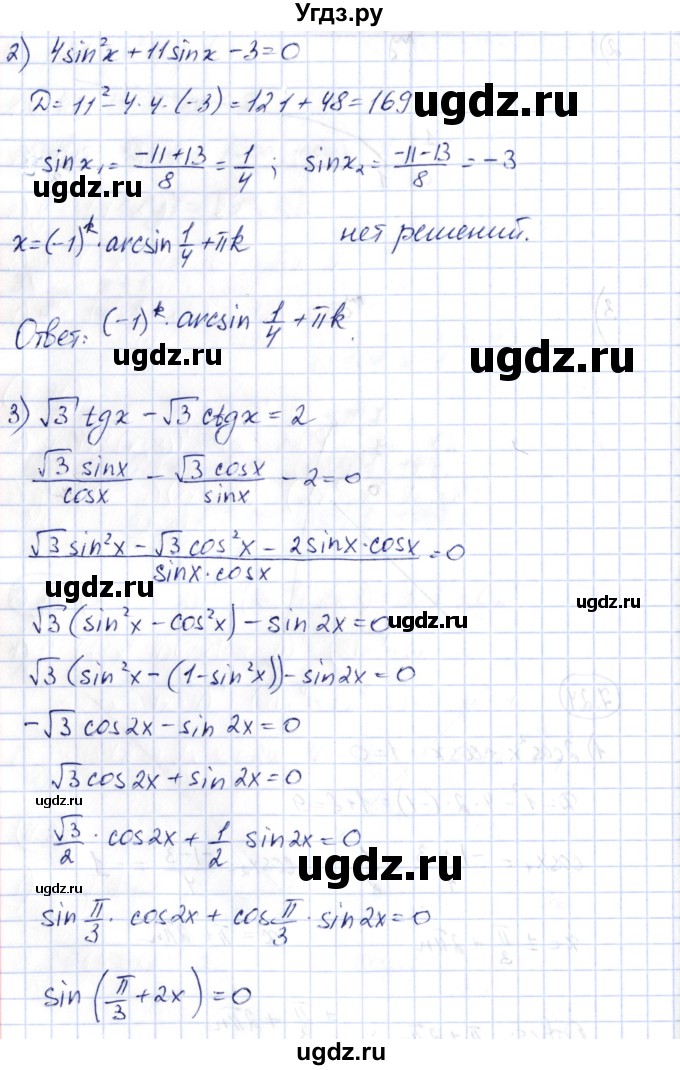 Угдз.ру
2) 4sin²x + 11sinx - 3 = 0
D = 11² - 4·4·(-3) = 121 + 48 = 169
ugdz.ru
sinx₁ = (-11+13)/8 = 1/4 ; sinx₂ = (-11-13)/8 = -3
ugdz.ru
x = (-1)ᵏ · arcsin 1/4 + πk нет решений.
Ответ: (-1)ᵏ · arcsin 1/4 + πk.
ugdz.ru ugdz.ru
3) √3 tgx - √3 ctgx = 2
√3 sinx/cosx - √3 cosx/sinx - 2 = 0
ugdz.ru
(√3 sin²x - √3 cos²x - 2sinx·cosx)/(sinx·cosx) = 0
ugdz.ru
ugdz.ru
√3 (sin²x - cos²x) - sin 2x = 0
ugdz.ru
√3 (sin²x - (1-sin²x)) - sin2x = 0
-√3 cos2x - sin 2x = 0
√3 cos2x + sin 2x = 0
ugdz.ru
√3/2 · cos2x + 1/2 sin2x = 0
ugdz.ru
ugdz.ru
sin π/3 · cos2x + cos π/3 · sin2x = 0
sin (π/3 + 2x) = 0
ugdz.ru
ugdz.ru